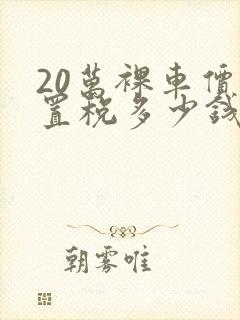 20萬裸車價
置稅多少錢
朝雾唯